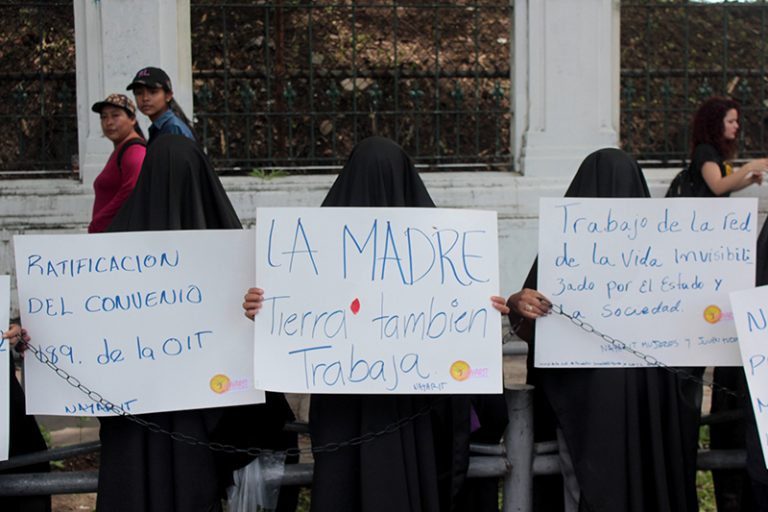 RATIFICACION
DEL CONVENIO
189. de la OIT
NAYARIT
LA MADRE
Tierra tambien
Trabaja.
NAYARIT
Trabajo de la red
de la Vida Invisibili
zado por El Estado y
La Sociedad.
NAYARIT MUJERES Y